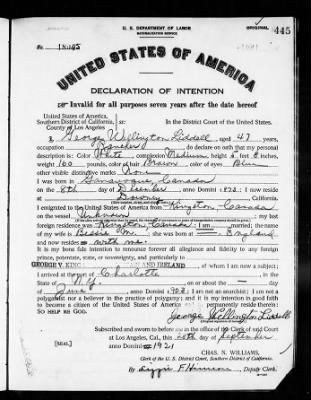 U. S. DEPARTMENT OF LABOR
NATURALIZATION SERVICE
ORIGINAL
445
No.
UNITED STATES OF AMERICA
DECLARATION OF INTENTION
Invalid for all purposes seven years after the date hereof
United States of America,
Southern District of California, ss: In the District Court of the United States.
County of Los Angeles
I, George Wellington Liddell, aged 47 years,
occupation Rancher, do declare on oath that my personal
description is: Color White, complexion Medium, height 5 feet 8 inches,
weight 160 pounds, color of hair Brown, color of eyes Blue
other visible distinctive marks None
I was born in Gananoque, Canada
on the 8th day of December, anno Domini 1873; I now reside
at Downey, California.
I emigrated to the United States of America from Kingston, Canada
on the vessel Unknown; my last
foreign residence was Kingston, Canada; I am married; the name
of my wife is Bessie M.; she was born at England
and now resides at with me.
It is my bona fide intention to renounce forever all allegiance and fidelity to any foreign
prince, potentate, state, or sovereignty, and particularly to
GEORGE V, KING AND IRELAND, of whom I am now a subject;
I arrived at the port of Charlotte, in the
State of N.Y., on or about the — day
of June, anno Domini 1903; I am not an anarchist; I am not a
polygamist nor a believer in the practice of polygamy; and it is my intention in good faith
to become a citizen of the United States of America and to permanently reside therein:
SO HELP ME GOD.
George Wellington Liddell
Subscribed and sworn to before me in the office of the Clerk of said Court
at Los Angeles, Cal., this 20th day of September
[SEAL] anno Domini 1921
CHAS. N. WILLIAMS,
Clerk of the U. S. District Court, Southern District of California.
By, Deputy Clerk.